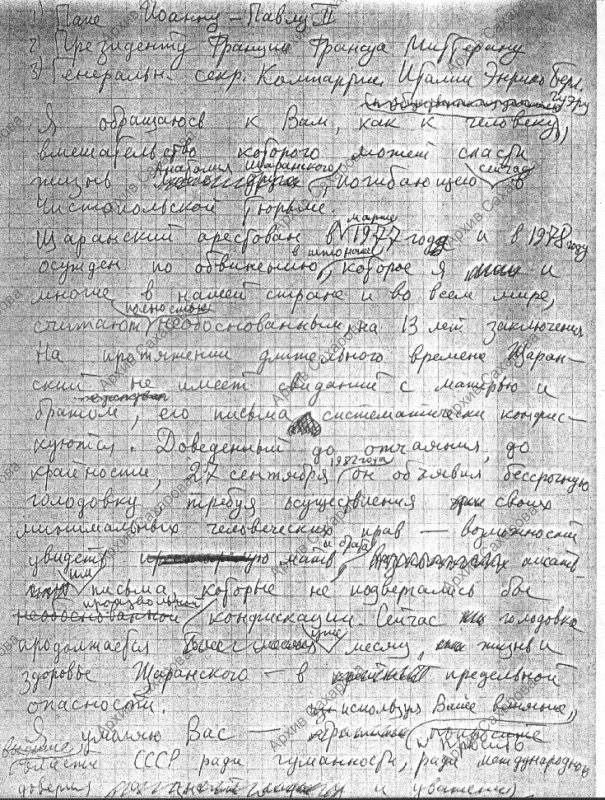 1) Папе Иоанну-Павлу II
2) Президенту Франции Франсуа Миттерану
3) Генеральн. секр. Компартии Италии Энрико Берлингуэру
Я обращаюсь к Вам, как к человеку,
вмешательство которого может спасти
жизнь Анатолия Щаранского, погибающего сейчас в
Чистопольской тюрьме.
Щаранский арестован в марте 1977 года и в 1978 году
осужден по обвинению, которое я и
многие в нашей стране и во всем мире,
считают полностью необоснованным, на 13 лет заключения
На протяжении длительного времени Щаран-
ский не имеет свиданий с матерью и
братом, его письма систематически конфис-
куются. Доведенный до отчаяния, до
крайности, 27 сентября 1982 года он объявил бессрочную
голодовку требуя осуществления своих
минимальных человеческих прав — возможности
увидеть мать и брата,
письма, которые не подвергались бы
произвольной конфискации. Сейчас голодовка
продолжается уже месяц, жизнь и
здоровье Щаранского — в предельной
опасности.
Я умоляю Вас — используя Ваше влияние,
просить
власти СССР ради гуманности, ради международного
доверия и уважения
Архив Сахарова